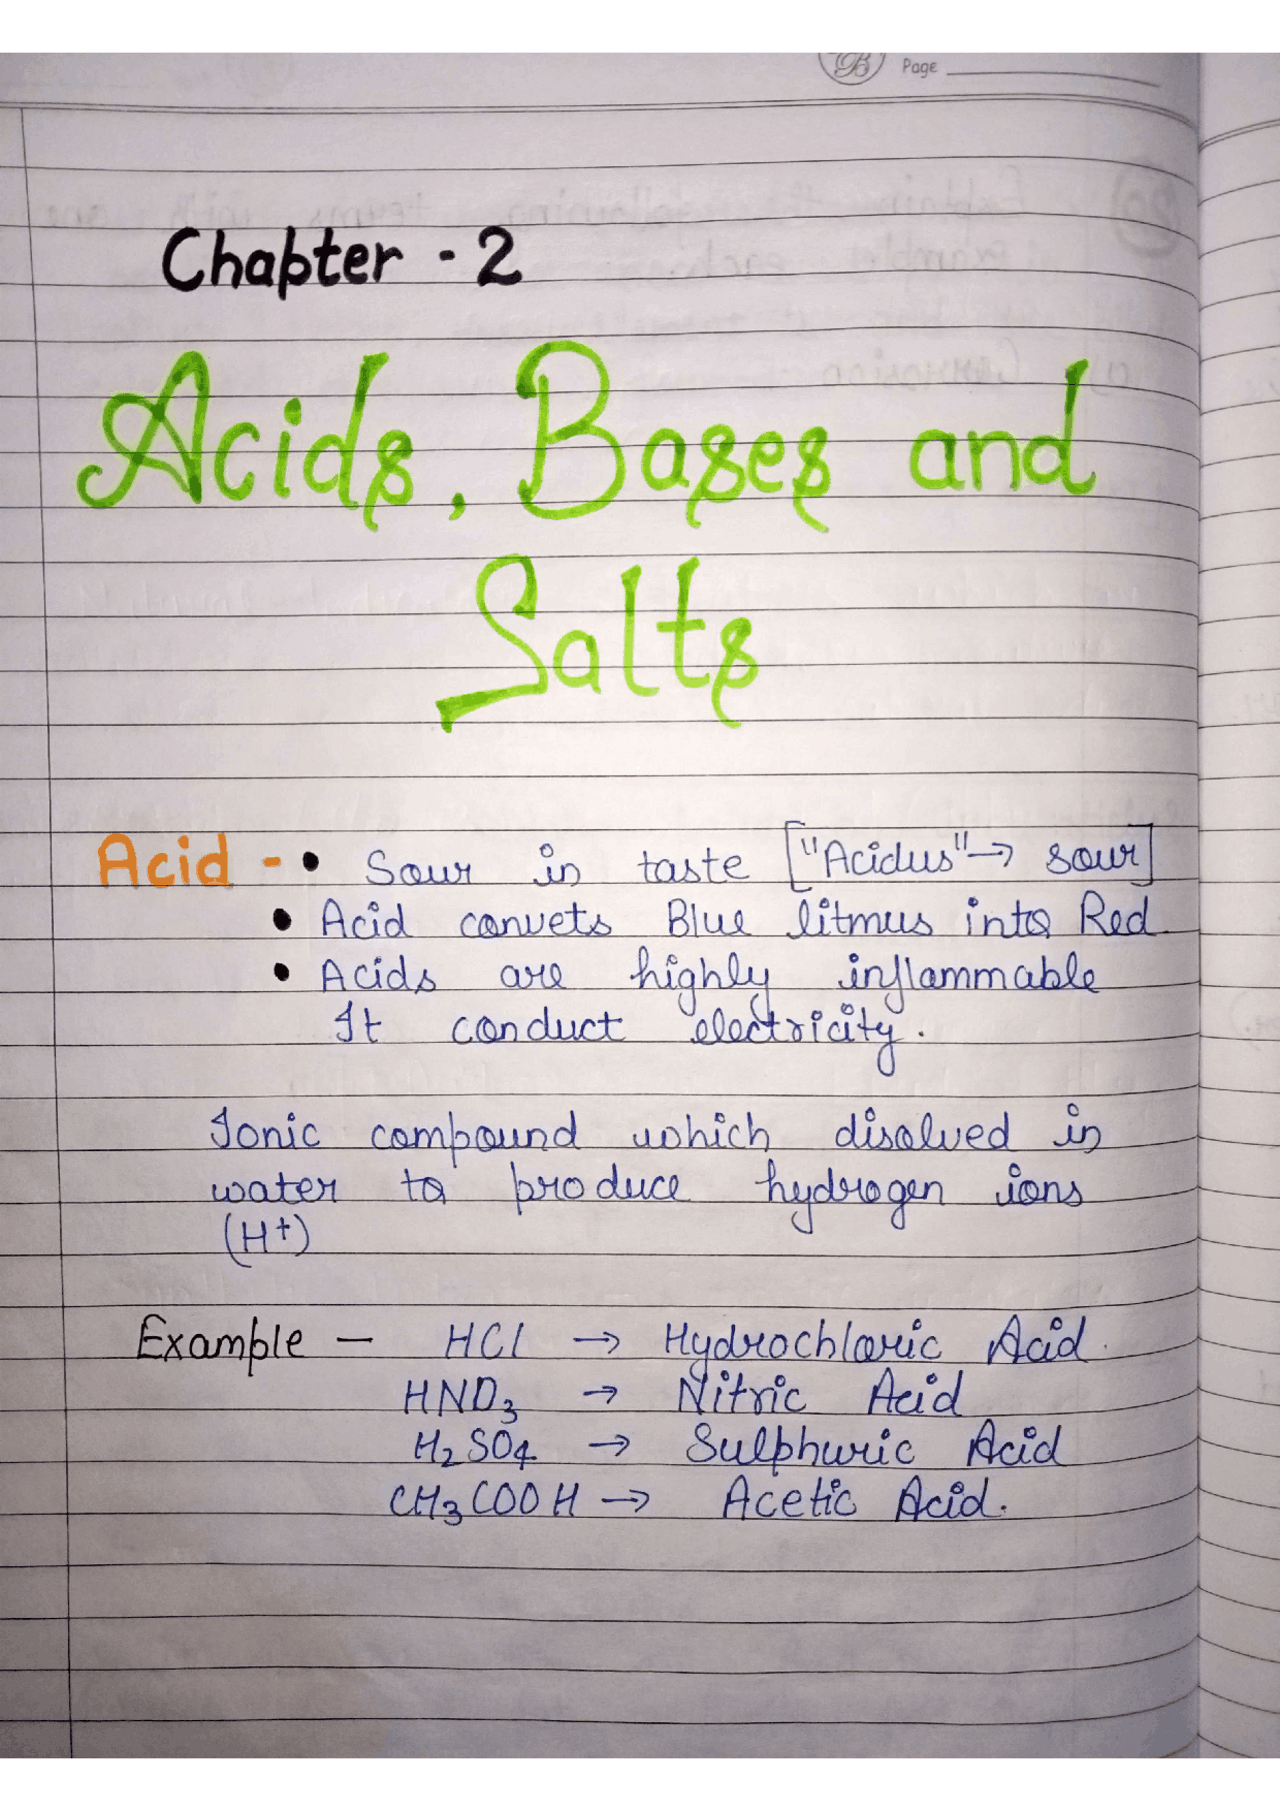 B Page
Chapter - 2
Acids, Bases and
Salts
Acid - • Sour in taste ["Acidus" → sour]
• Acid convets Blue litmus into Red
• Acids are highly inflammable
It conduct electricity.
Ionic compound which disolved in
water to produce hydrogen ions
(H+)
Example — HCl → Hydrochloric Acid.
HNO3 → Nitric Acid
H2SO4 → Sulphuric Acid
CH3COOH → Acetic Acid.